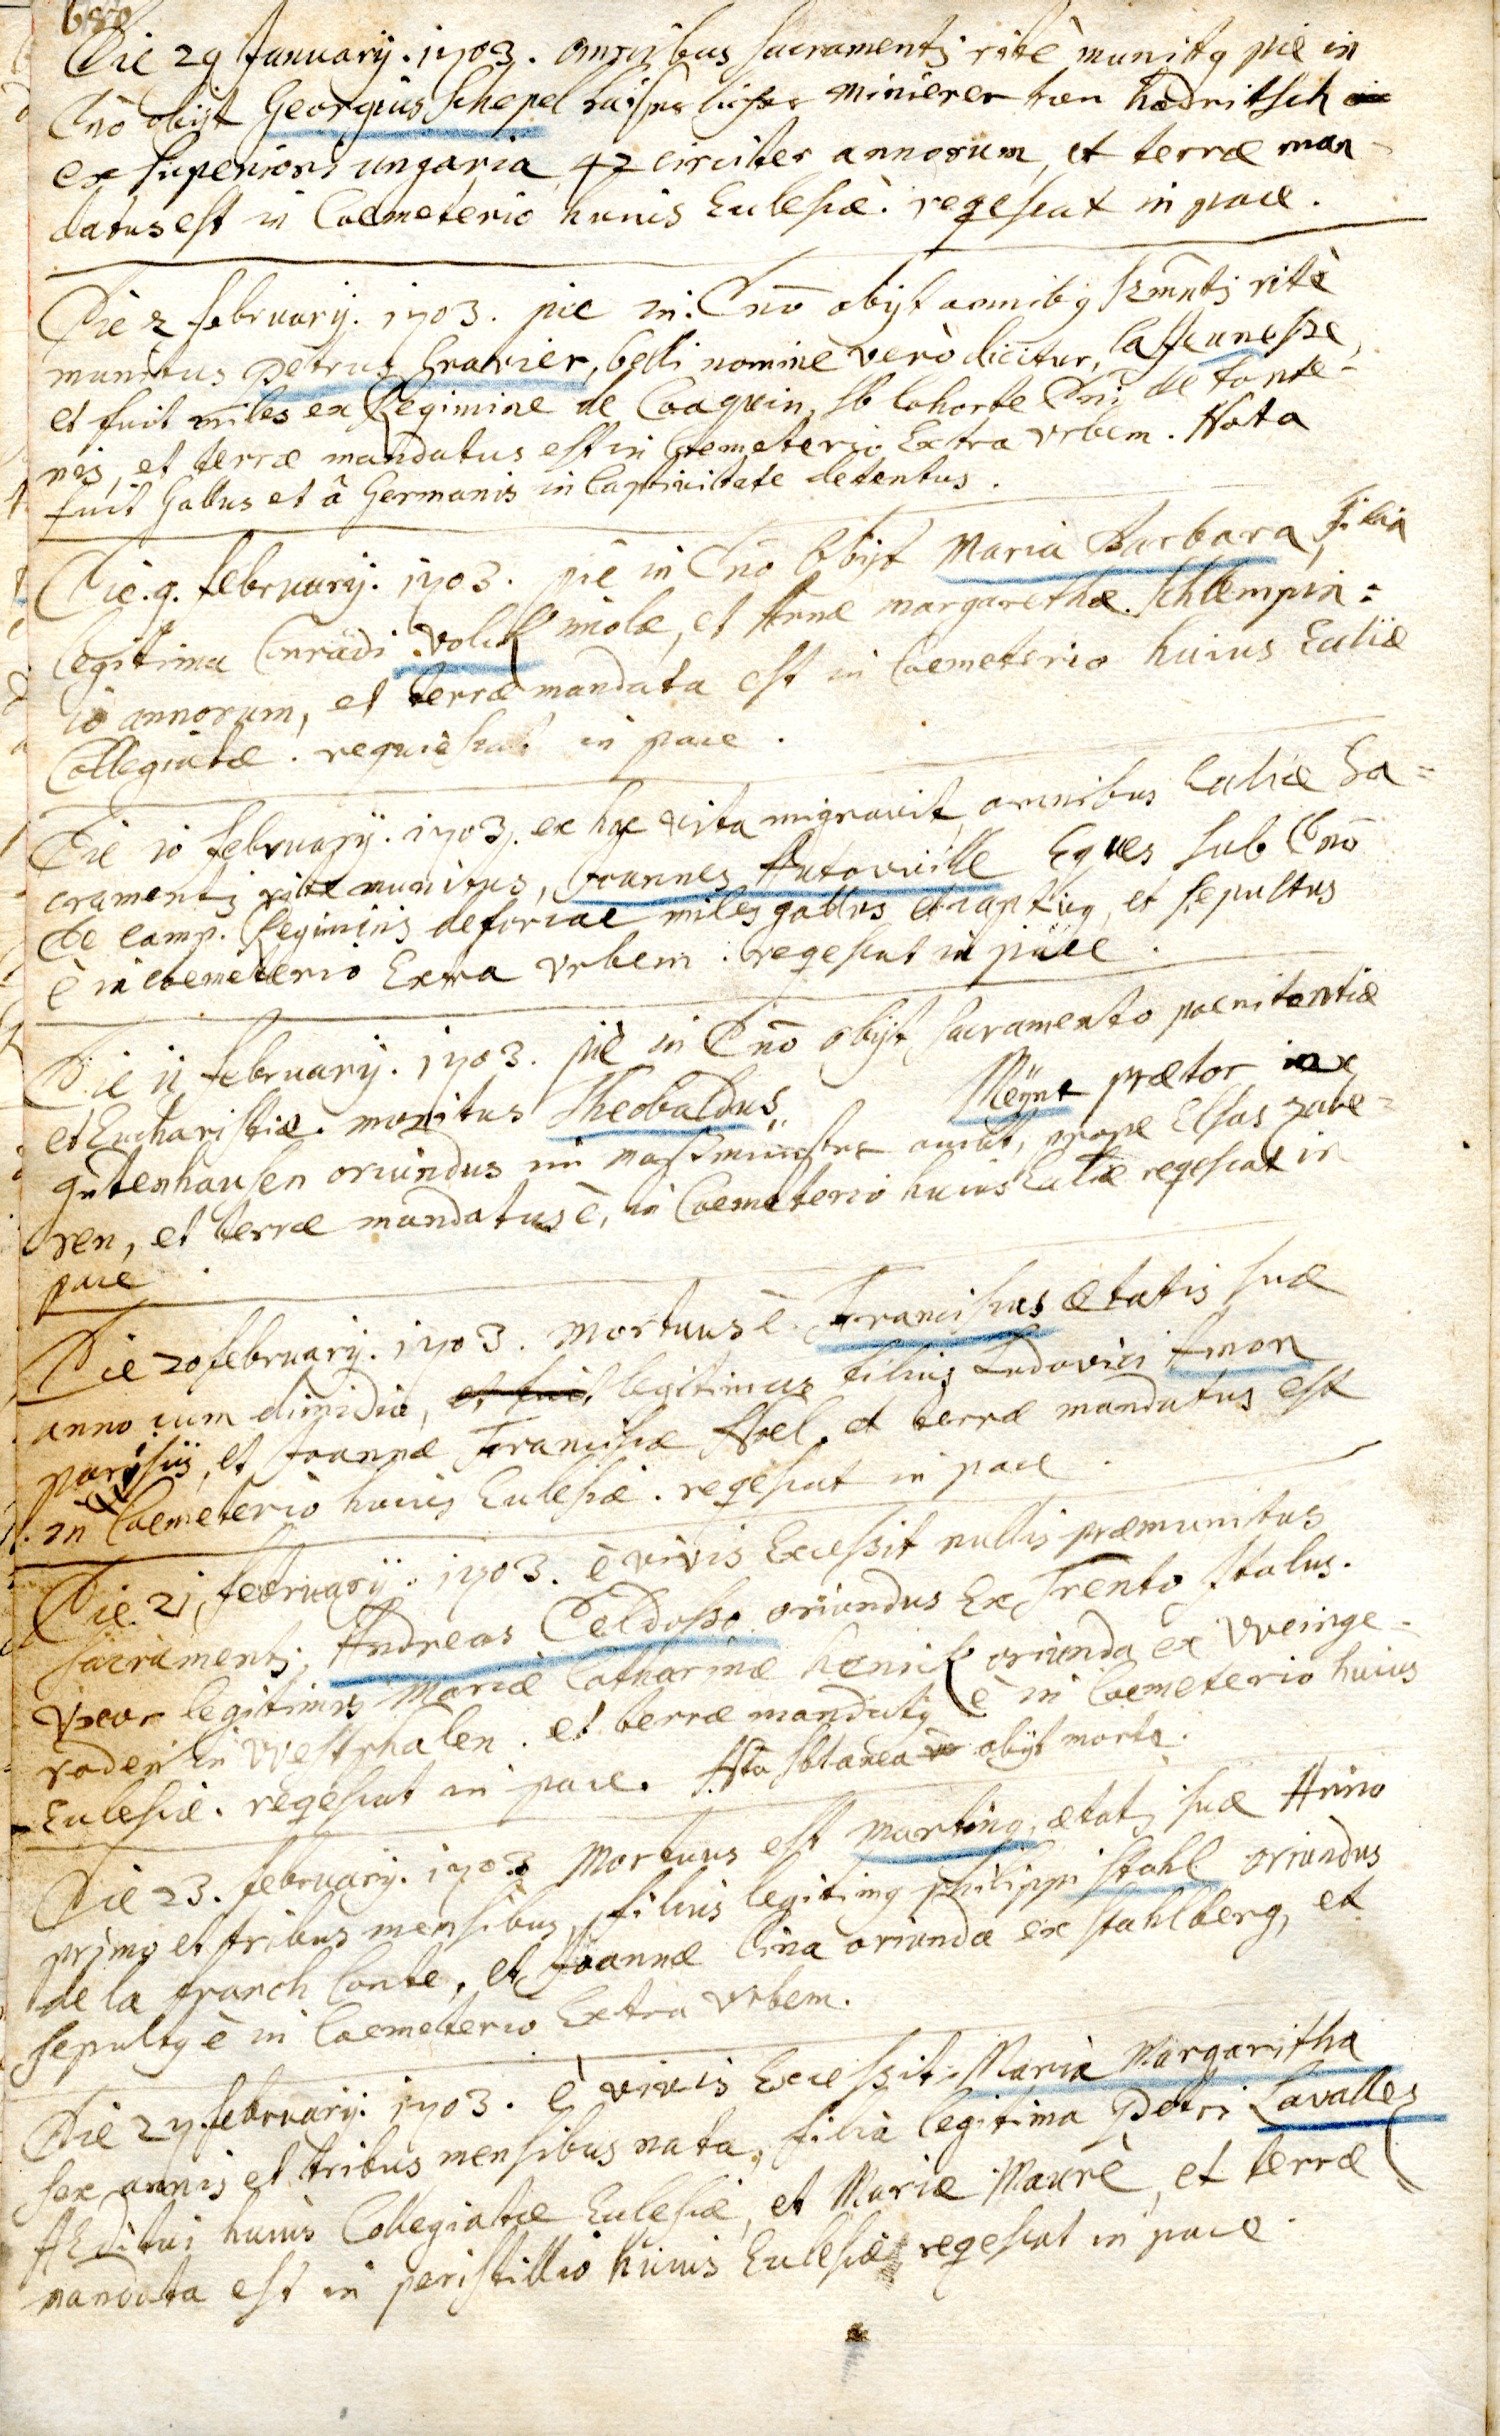 Die 29 January. 1703. omnibus sacramentj ritè munitq pie in
Dnō obijt Georgius Schepel kaiserlicher minierer von hodritsch
ex superiori ungaria 47 circiter annorum, et terræ man-
datus est in Coemeterio huius Eulesiæ. reqescat in pace.
Die 2 february. 1703. pie in. Dnō obijt omnibq Srmntj ritè
munitus petrus Gravier, belli nomine verò dicitur, la Jeunesse,
et fuit miles ex Regimine de Coaquin, sb Cohorte Dni de fonte-
nis, et terræ mandatus est in Coemeterio Extra Vrbem. Nota
fuit Gallus et â Germanis in Captivitate detentus.
Die. 9. february. 1703. piè in Dnō Obijt Maria Barbara, filia
legitima Conradi Volck miolæ, et Annæ margarethæ Schlempin:
10 annorum, et terræ mandata est in Coemeterio huius Ecclïæ
Collegiatæ. requiescat in pace.
Die 10 february. 1703. ex hac vita migravit, omnibus Ecclïæ Sa=
cramentj rite munitus, Joannes Autoville Eques sub Dnō
de camp. Regiminis deforcae miles gallus et captivq, et sepultus
è in coemeterio Extra Vrbem. reqescat in pace.
Die 11 february. 1703. piè in Dnō obijt, sacramento poenitentiæ
et Eucharistiæ. monitus Theobaldus,, Meÿnt prætor in
gutenhausen oriundus in masmunster ambt, prope Elsas zabe=
ren, et terræ mandatus è, in Coemeterio huius Ecclïæ reqescat in
pace.
Die 20 february. 1703. mortuus è. Franciscus ætatis suæ
anno cum dimidio, et fuit legitimus filius Ludovici Amon
parisiis, et Joannæ Franciscæ Noel. et terræ mandatus est
in Coemeterio huius Eulesiæ. reqescat in pace.
Die. 21, february. 1703. è vivis Excessit nullis præmunitus
sacramentj, Andreas Celdosso oriundus Ex Trento Italus.
Vxor legitimus Mariæ Catharinæ henick oriunda ex Weinge-
roden in Westphalen. et terræ mandatq è in Coemeterio huius
Eulesiæ. reqescat in pace. Nta sbtanea obijt morte.
Die 23. february. 1703 Mortuus est Martinq, ætatj suæ Anno
primo et tribus mensibus, filius legitimq philippi Stahl oriundus
de la franch Conte, et Joannæ Cina oriunda ex Stahlberg, et
sepultq è in Coemeterio Extra Vrbem.
Die 27. february. 1703. è vivis Excessit, Maria Margaritha
sex annis et tribus mensibus nata, filia legitima Petri Lavallez
AEditui huius Collegiatæ Eulesiæ, et Mariæ Maurè, et terræ
mandata est in peristillio huius Eulesiæ, reqescat in pace.